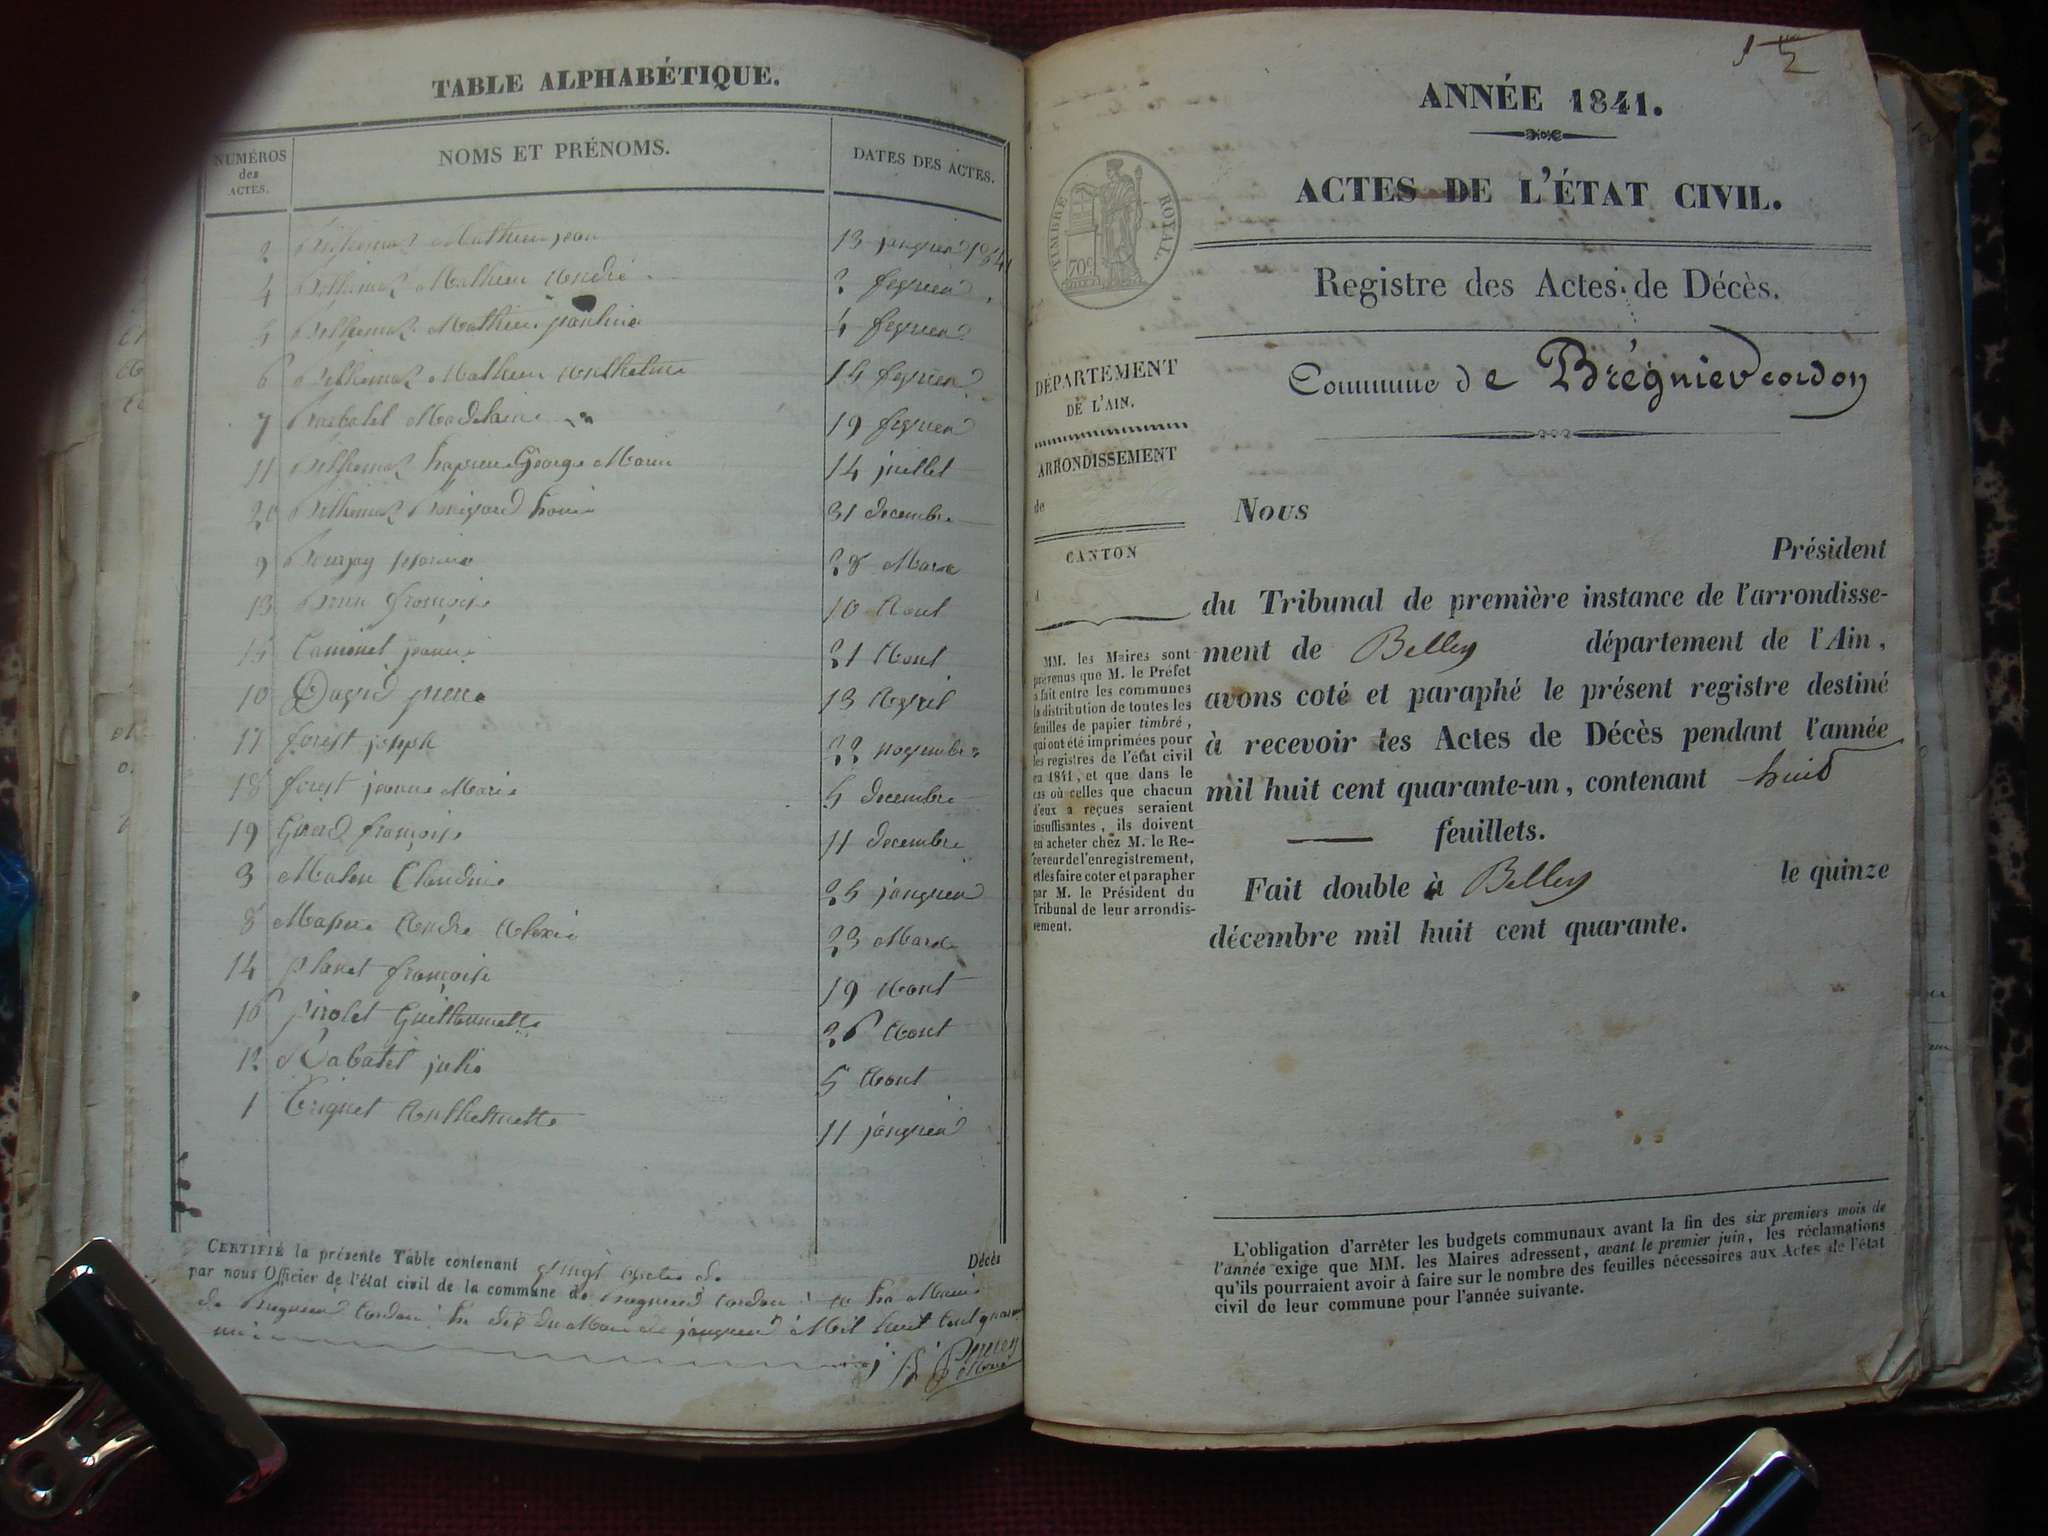 TABLE ALPHABÉTIQUE.
NUMÉROS des ACTES.
NOMS ET PRÉNOMS.
DATES DES ACTES.
2 Mathieu jean 13 janvier 1841
4 Mathieu André 2 fevrier
5 Mathieu pauline 4 fevrier
6 Mathieu Anthelme 14 fevrier
7 Madelaine 19 fevrier
11 George Marie 14 juillet
20 31 decembre
9 28 Mars
13 françoise 10 Aout
15 21 Aout
10 David pierre 13 Avril
17 forest joseph 22 novembre
18 forest jeanne Marie 5 decembre
19 françoise 11 decembre
3 Claudine 25 janvier
8 Andre Alexis 23 Mars
14 planet françoise 19 Aout
16 pirolet Guillaumette 26 Aout
12 Rabatel julie 5 Aout
1 Anthelmette 11 janvier
CERTIFIÉ la présente Table contenant vingt actes de Décès
par nous Officier de l'état civil de la commune de Bregnier Cordon : en la Mairie
de Bregnier Cordon, le dix du Mois de janvier Mil huit Cent
ANNÉE 1841.
ACTES DE L'ÉTAT CIVIL.
TIMBRE ROYAL.
70c
Registre des Actes de Décès.
Commune de Brégniercordon
DÉPARTEMENT
DE L'AIN.
ARRONDISSEMENT
de
CANTON
d
MM. les Maires sont
prévenus que M. le Préfet
a fait entre les communes
la distribution de toutes les
feuilles de papier timbré,
qui ont été imprimées pour
les registres de l'état civil
en 1841, et que dans le
cas où celles que chacun
d'eux a reçues seraient
insuffisantes, ils doivent
en acheter chez M. le Re-
ceveur de l'enregistrement,
et les faire coter et parapher
par M. le Président du
Tribunal de leur arrondis-
sement.
Nous
Président
du Tribunal de première instance de l'arrondisse-
ment de Belley département de l'Ain,
avons coté et paraphé le présent registre destiné
à recevoir les Actes de Décès pendant l'année
mil huit cent quarante-un, contenant huit
feuillets.
Fait double à Belley le quinze
décembre mil huit cent quarante.
L'obligation d'arrêter les budgets communaux avant la fin des six premiers mois de
l'année exige que MM. les Maires adressent, avant le premier juin, les réclamations
qu'ils pourraient avoir à faire sur le nombre des feuilles nécessaires aux Actes de l'état
civil de leur commune pour l'année suivante.